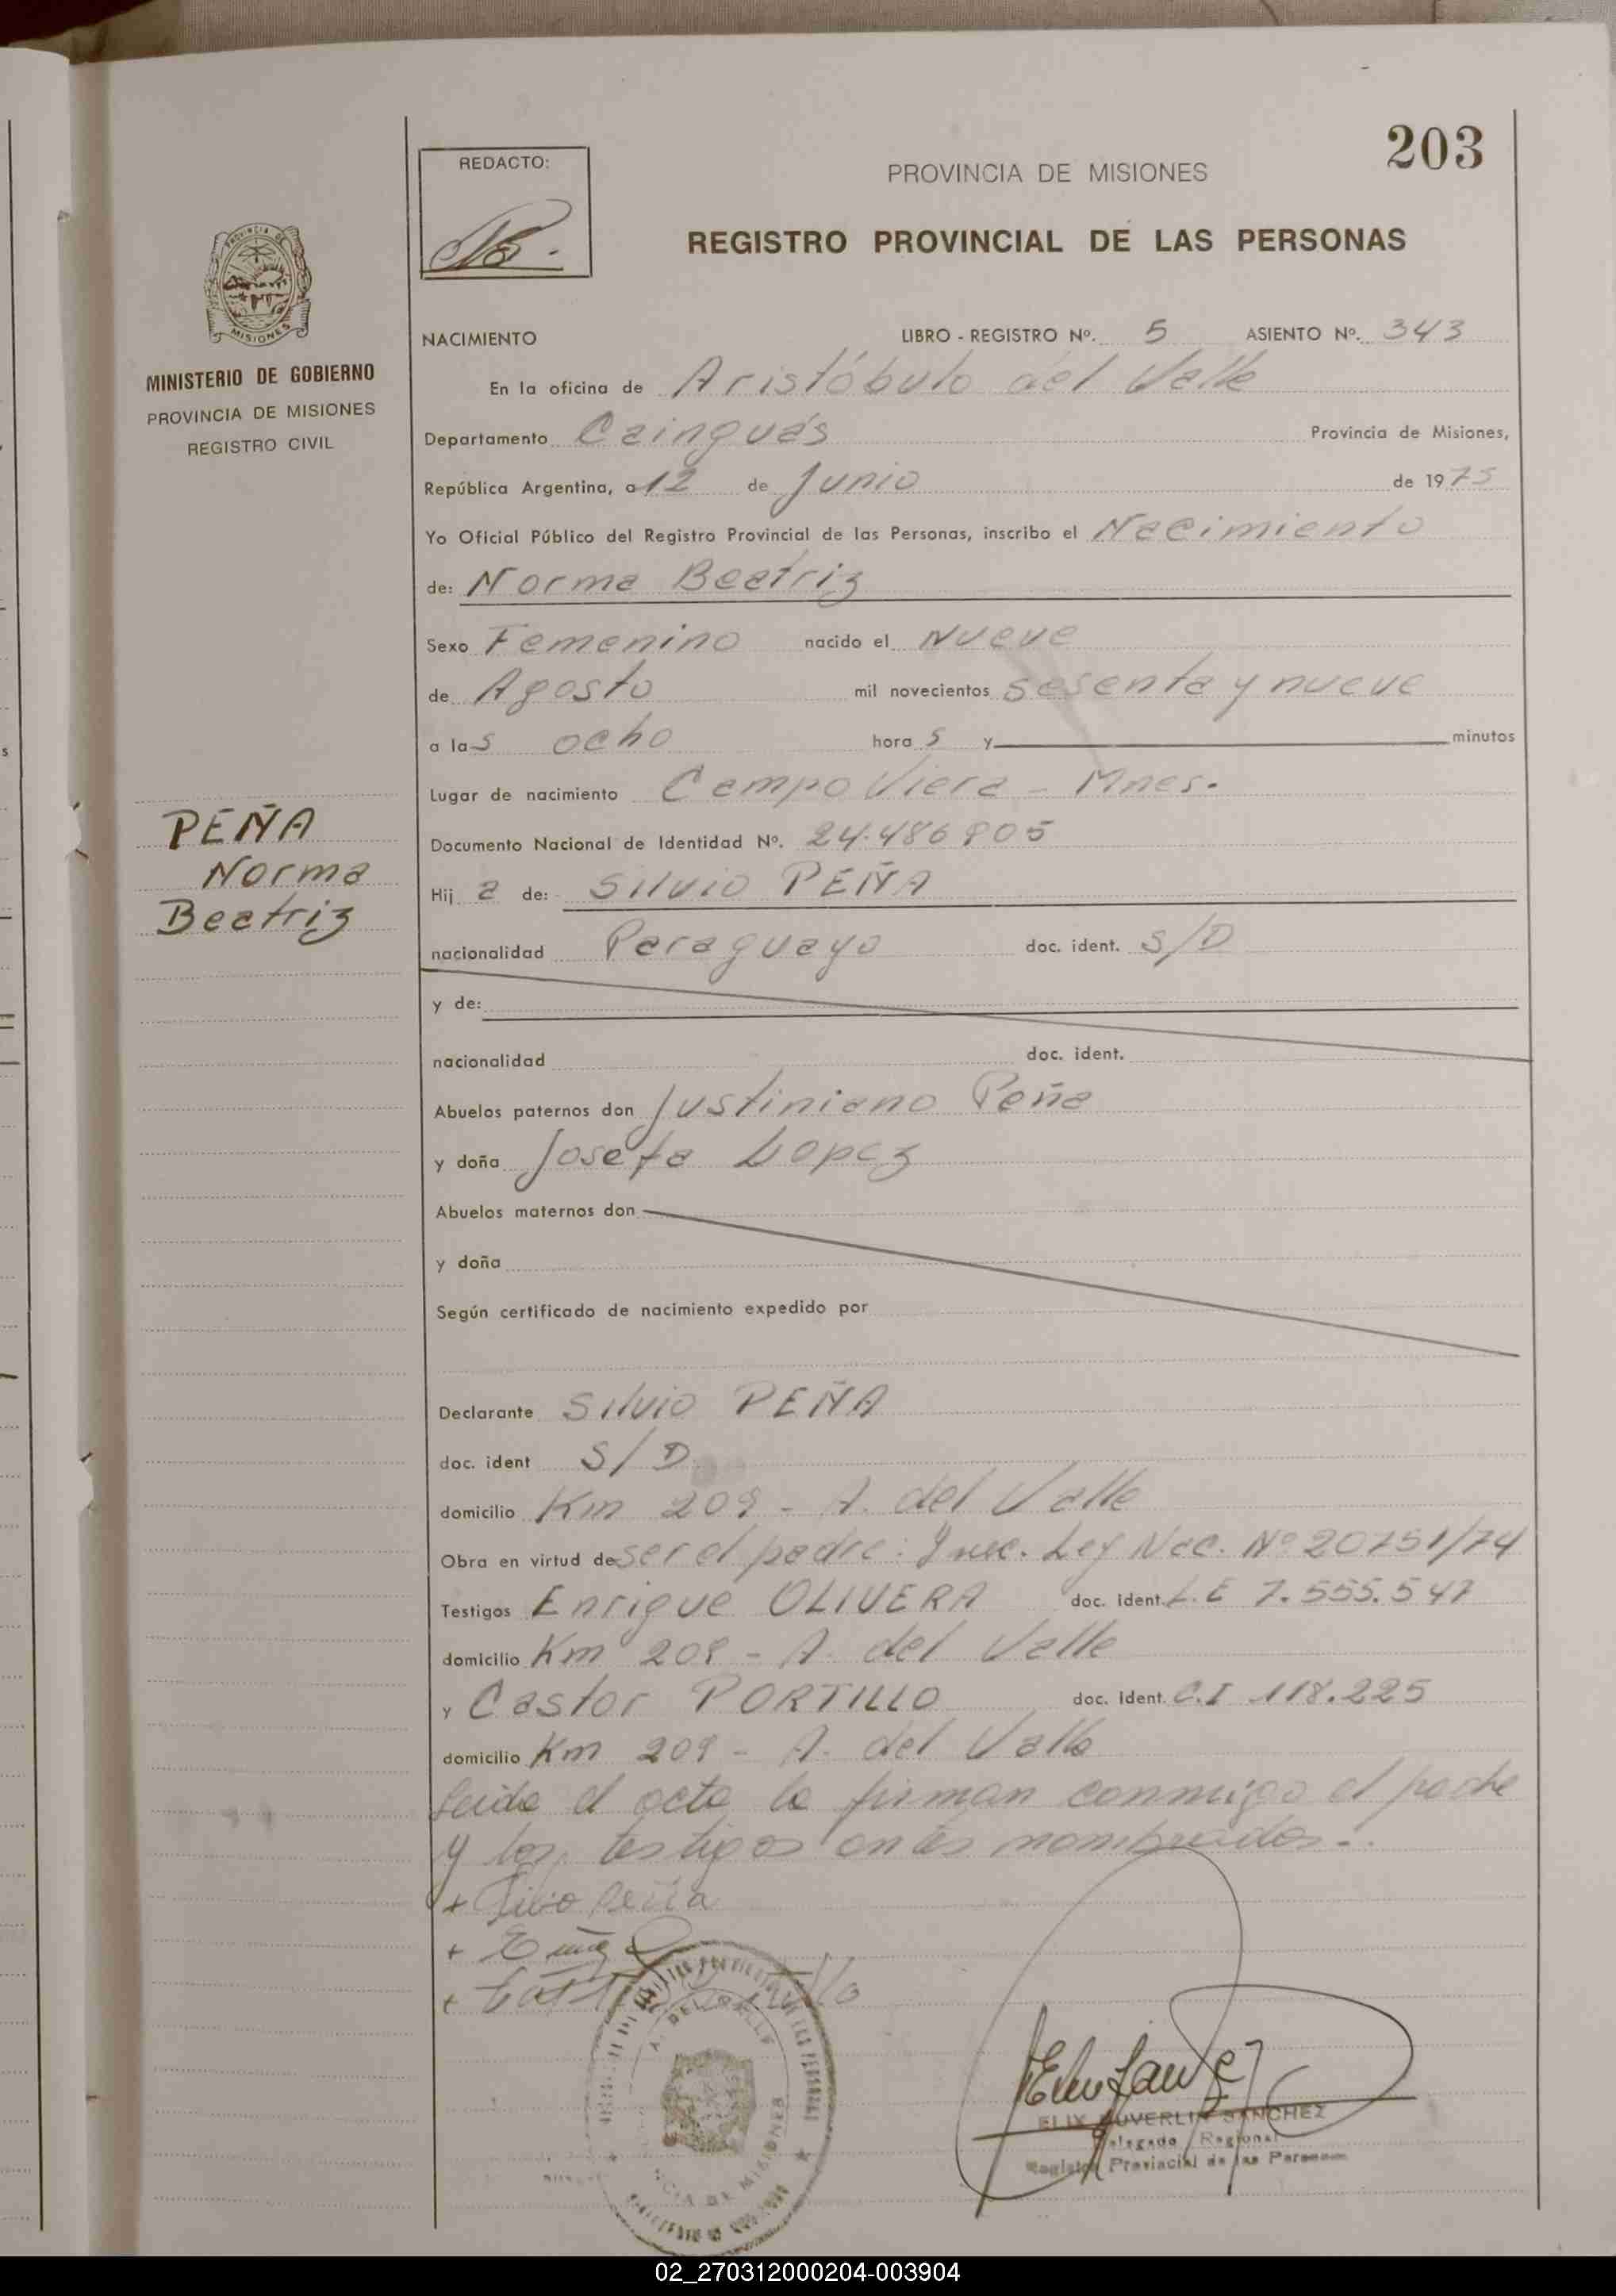 203
REDACTO:
PROVINCIA DE MISIONES
REGISTRO PROVINCIAL DE LAS PERSONAS
MISIONES
MINISTERIO DE GOBIERNO
PROVINCIA DE MISIONES
REGISTRO CIVIL
PEÑA
Norma
Beatriz
NACIMIENTO LIBRO - REGISTRO Nº. 5 ASIENTO Nº. 343
En la oficina de Aristóbulo del Valle
Departamento Cainguás Provincia de Misiones,
República Argentina, a 12 de Junio de 1975
Yo Oficial Público del Registro Provincial de las Personas, inscribo el Nacimiento
de: Norma Beatriz
Sexo Femenino nacido el Nueve
de Agosto mil novecientos sesenta y nueve
a las ocho horas y minutos
Lugar de nacimiento Campo Viera - Mnes.
Documento Nacional de Identidad Nº. 24.486805
Hija de: Silvio PEÑA
nacionalidad Paraguayo doc. ident. S/D
y de:
nacionalidad doc. ident.
Abuelos paternos don Justiniano Peña
y doña Josefa Lopez
Abuelos maternos don
y doña
Según certificado de nacimiento expedido por
Declarante Silvio PEÑA
doc. ident S/D
domicilio Km 209 - A. del Valle
Obra en virtud de ser el padre: Ley Nac. Nº 20751/74
Testigos Enrique OLIVERA doc. ident. L.E 7.555.547
domicilio Km 209 - A. del Valle
y Castor PORTILLO doc. ident. C.I 118.225
domicilio Km 209 - A. del Valle
Leida el acta la firman conmigo el padre
y los testigos antes nombrados.
SANCHEZ
Delegado Regional
Registro Provincial de las Personas
A. DEL VALLE
02_270312000204-003904